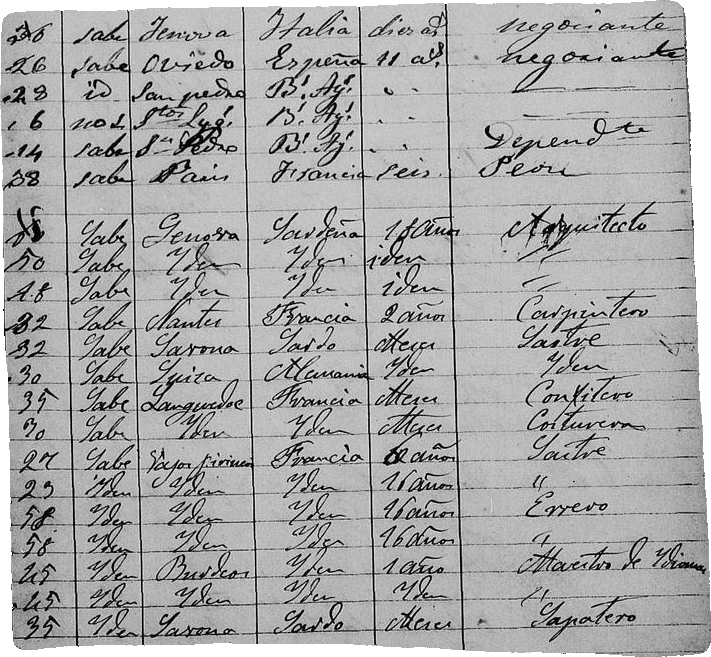 36 sabe Jenova Italia diez as negociante
26 sabe Oviedo España 11 as. negociante
28 id San pedro Bs. Ays. " —
16 no s Stos Lugs. Bs. Ays. " "
14 sabe Sn Pedro Bs. Ays. " " Dependte
38 sabe Paris Francia seis. Peon
Sabe Genova Sardeña 18 años Arquitecto
50 Sabe Yden Yden iden "
48 Sabe Yden Yden iden "
32 Sabe Nantes Francia 2 años Carpintero
32 Sabe Savona Sardo Meses Sastre
30 Sabe Suiza Alemania Yden Yden
35 Sabe Languedoc Francia Meses Confitero
30 Sabe Yden Yden Meses Costurera
27 Sabe Vajos pirineos Francia años Sastre
23 Yden Yden Yden 16 años "
58 Yden Yden Yden 16 años Errero
58 Yden Yden Yden 16 años "
45 Yden Burdeos Yden 1 año Maestro de Ydiomas
45 Yden Yden Yden Yden "
35 Yden Savona Sardo Meses Sapatero